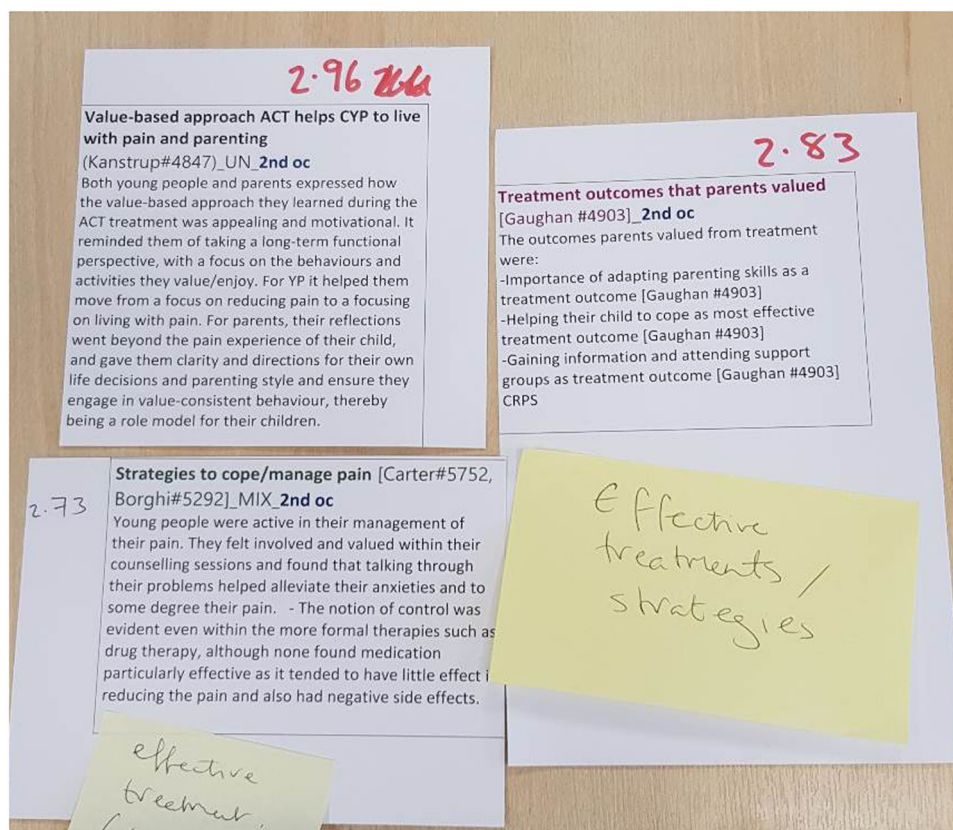 2.96
Value-based approach ACT helps CYP to live
with pain and parenting
(Kanstrup#4847)_UN_2nd oc
Both young people and parents expressed how
the value-based approach they learned during the
ACT treatment was appealing and motivational. It
reminded them of taking a long-term functional
perspective, with a focus on the behaviours and
activities they value/enjoy. For YP it helped them
move from a focus on reducing pain to a focusing
on living with pain. For parents, their reflections
went beyond the pain experience of their child,
and gave them clarity and directions for their own
life decisions and parenting style and ensure they
engage in value-consistent behaviour, thereby
being a role model for their children.
2.83
Treatment outcomes that parents valued
[Gaughan #4903]_2nd oc
The outcomes parents valued from treatment
were:
-Importance of adapting parenting skills as a
treatment outcome [Gaughan #4903]
-Helping their child to cope as most effective
treatment outcome [Gaughan #4903]
-Gaining information and attending support
groups as treatment outcome [Gaughan #4903]
CRPS
2.73
Strategies to cope/manage pain [Carter#5752,
Borghi#5292]_MIX_2nd oc
Young people were active in their management of
their pain. They felt involved and valued within their
counselling sessions and found that talking through
their problems helped alleviate their anxieties and to
some degree their pain.  - The notion of control was
evident even within the more formal therapies such as
drug therapy, although none found medication
particularly effective as it tended to have little effect i
reducing the pain and also had negative side effects.
Effective
treatments /
strategies
effective